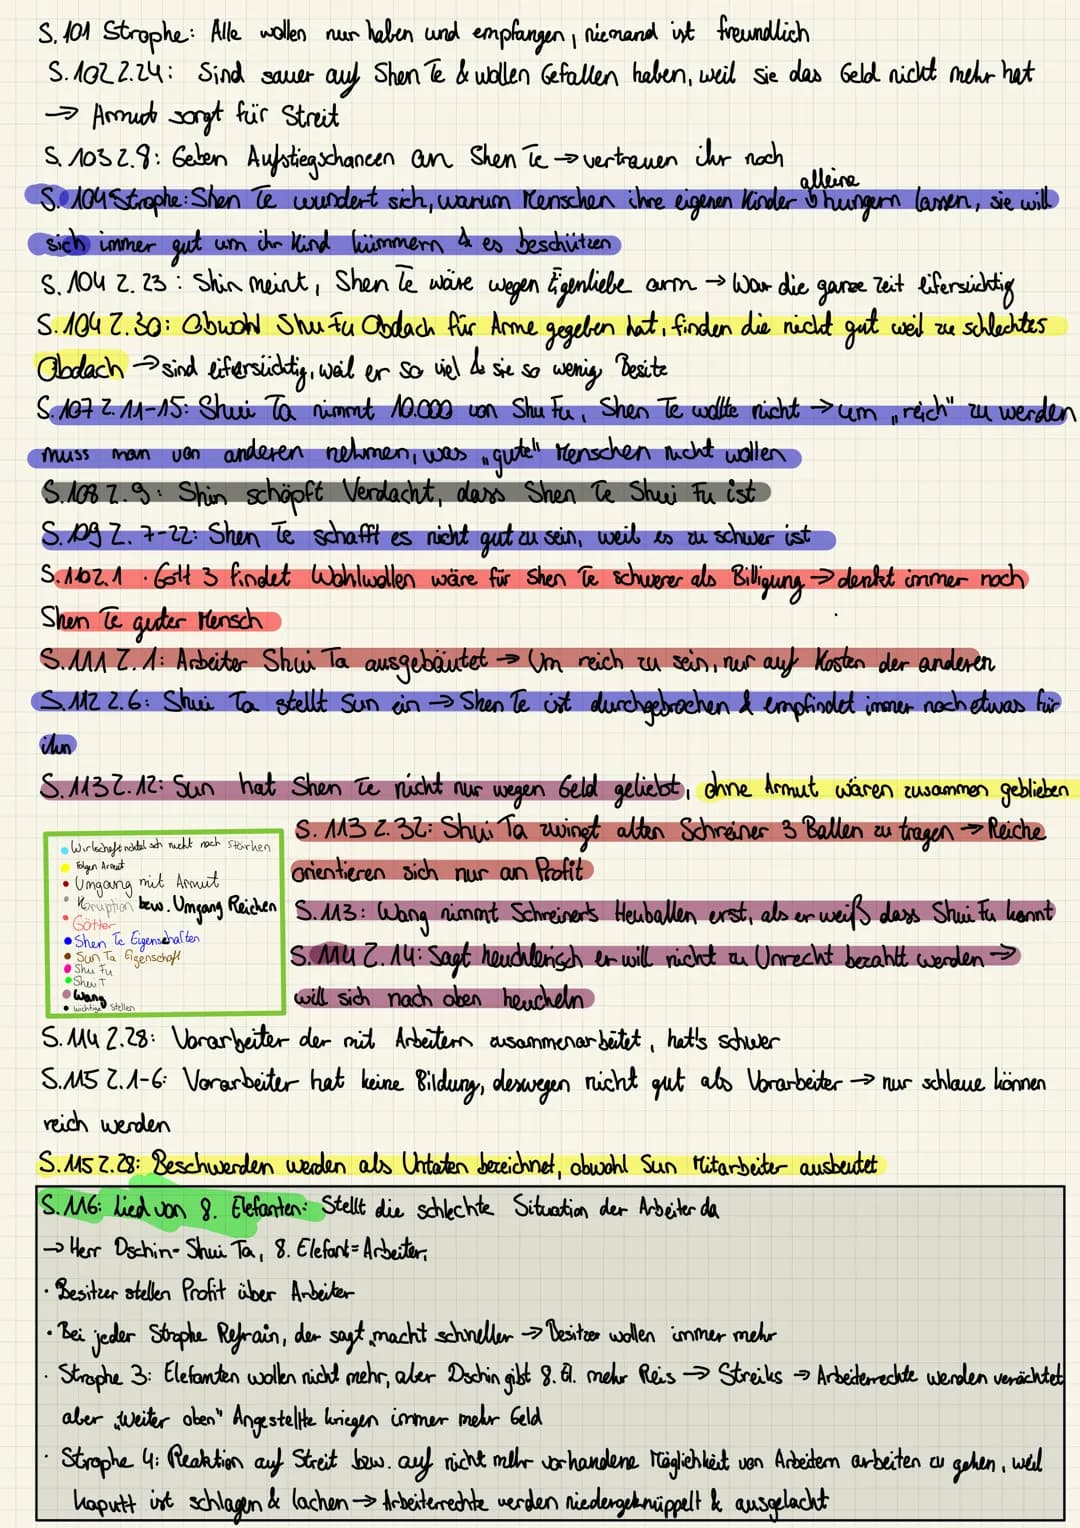 S. 101 Strophe: Alle wollen nur haben und empfangen, niemand ist freundlich
S. 102 Z.24: Sind sauer auf Shen Te & wollen Gefallen haben, weil sie das Geld nicht mehr hat
→ Armut sorgt für Streit
S. 103 Z.8: Geben Aufstiegschancen an Shen Te → vertrauen ihr noch
alleine
S. 104 Strophe: Shen Te wundert sich, warum Menschen ihre eigenen Kinder hungern lassen, sie will
sich immer gut um ihr Kind kümmern & es beschützen
S. 104 Z. 23: Shin meint, Shen Te wäre wegen Eigenliebe arm → War die ganze Zeit eifersüchtig
S. 104 Z.30: Obwohl Shu Fu Obdach für Arme gegeben hat, finden die nicht gut weil zu schlechtes
Obdach → sind eifersüchtig, weil er so viel & sie so wenig Besitz
S. 107 Z. 11-15: Shui Ta nimmt 10.000 von Shu Fu, Shen Te wollte nicht → um „reich" zu werden
muss man von anderen nehmen, was „gute" Menschen nicht wollen
S. 108 Z.9: Shin schöpft Verdacht, dass Shen Te Shui Fu ist
S. 109 Z. 7-22: Shen Te schafft es nicht gut zu sein, weil es zu schwer ist
S. 110 Z.1 Gott 3 findet Wohlwollen wäre für Shen Te schwerer als Billigung → denkt immer noch
Shen Te guter Mensch
S. 111 Z. 1: Arbeiter Shui Ta ausgebäutet → Um reich zu sein, nur auf Kosten der anderen
S. 112 Z.6: Shui Ta stellt Sun ein → Shen Te ist durchgebrochen & empfindet immer noch etwas für
ihn
S. 113 Z. 12: Sun hat Shen Te nicht nur wegen Geld geliebt, ohne Armut wären zusammen geblieben
S. 113 Z. 32: Shui Ta zwingt alten Schreiner 3 Ballen zu tragen → Reiche
orientieren sich nur an Profit
S. 113: Wang nimmt Schreiner's Heuballen erst, als er weiß dass Shui Fu kommt
S. 114 Z. 14: Sagt heuchlerisch er will nicht zu Unrecht bezahlt werden →
will sich nach oben heucheln
• Wirtschaft nicht nach Stärken
• Folgen Armut
• Umgang mit Armut
• Koruption bzw. Umgang Reichen
• Götter
• Shen Te Eigenschaften
• Sun Ta Eigenschaft
• Shu Fu
• Shui T
• Wang
• wichtige Stellen
S. 114 Z.28: Vorarbeiter der mit Arbeitern zusammenarbeitet, hat's schwer
S. 115 Z. 1-6: Vorarbeiter hat keine Bildung, deswegen nicht gut als Vorarbeiter → nur schlaue können
reich werden
S. 115 Z.28: Beschwerden werden als Untaten bezeichnet, obwohl Sun Mitarbeiter ausbeutet
S. 116: Lied von 8. Elefanten: Stellt die schlechte Situation der Arbeiter da
→ Herr Dschin- Shui Ta, 8. Elefant = Arbeiter,
· Besitzer stellen Profit über Arbeiter
· Bei jeder Strophe Refrain, der sagt, macht schneller → Besitzer wollen immer mehr
· Strophe 3: Elefanten wollen nicht mehr, aber Dschin gibt 8. El. mehr Reis → Streiks → Arbeiterrechte werden verächtet
aber „Weiter oben" Angestellte kriegen immer mehr Geld
· Strophe 4: Reaktion auf Streit bzw. auf nicht mehr vorhandene Möglichkeit von Arbeitern arbeiten zu gehen, weil
kaputt ist schlagen & lachen → Arbeiterrechte werden niedergeknüppelt & ausgelacht